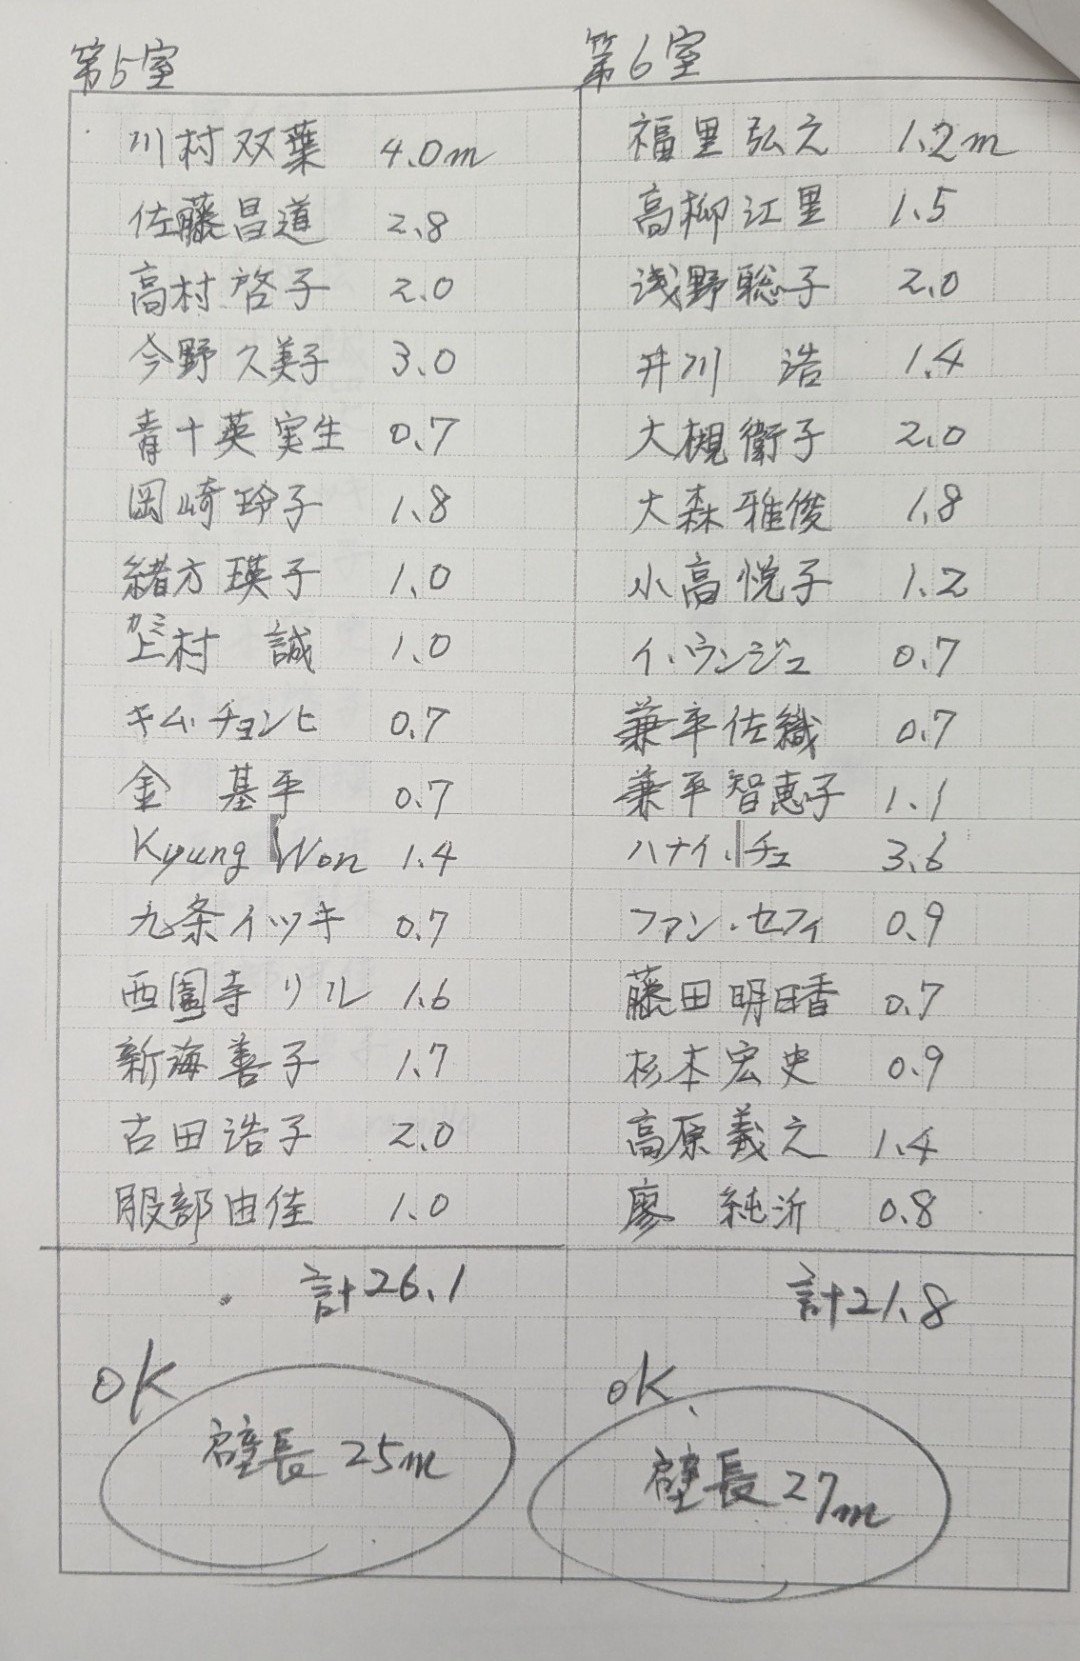 第5室
川村双葉 4.0m
佐藤昌道 2.8
高村啓子 2.0
今野久美子 3.0
青十英実生 0.7
岡崎玲子 1.8
緒方瑛子 1.0
カミ
上村 誠 1.0
キム・チョンヒ 0.7
金 基平 0.7
Kyung Won 1.4
九条イツキ 0.7
西園寺リル 1.6
新海善子 1.7
古田浩子 2.0
服部由佳 1.0
計26.1
OK
壁長25m
第6室
福里弘之 1.2m
高柳江里 1.5
浅野聡子 2.0
井川 浩 1.4
大槻衛子 2.0
大森雅俊 1.8
小高悦子 1.2
イ・ウンジュ 0.7
兼平佐織 0.7
兼平智恵子 1.1
ハナイ・チェ 3.6
ファン・セフィ 0.9
藤田明日香 0.7
杉本宏史 0.9
高原義之 1.4
廖 純沂 0.8
計21.8
OK.
壁長27m